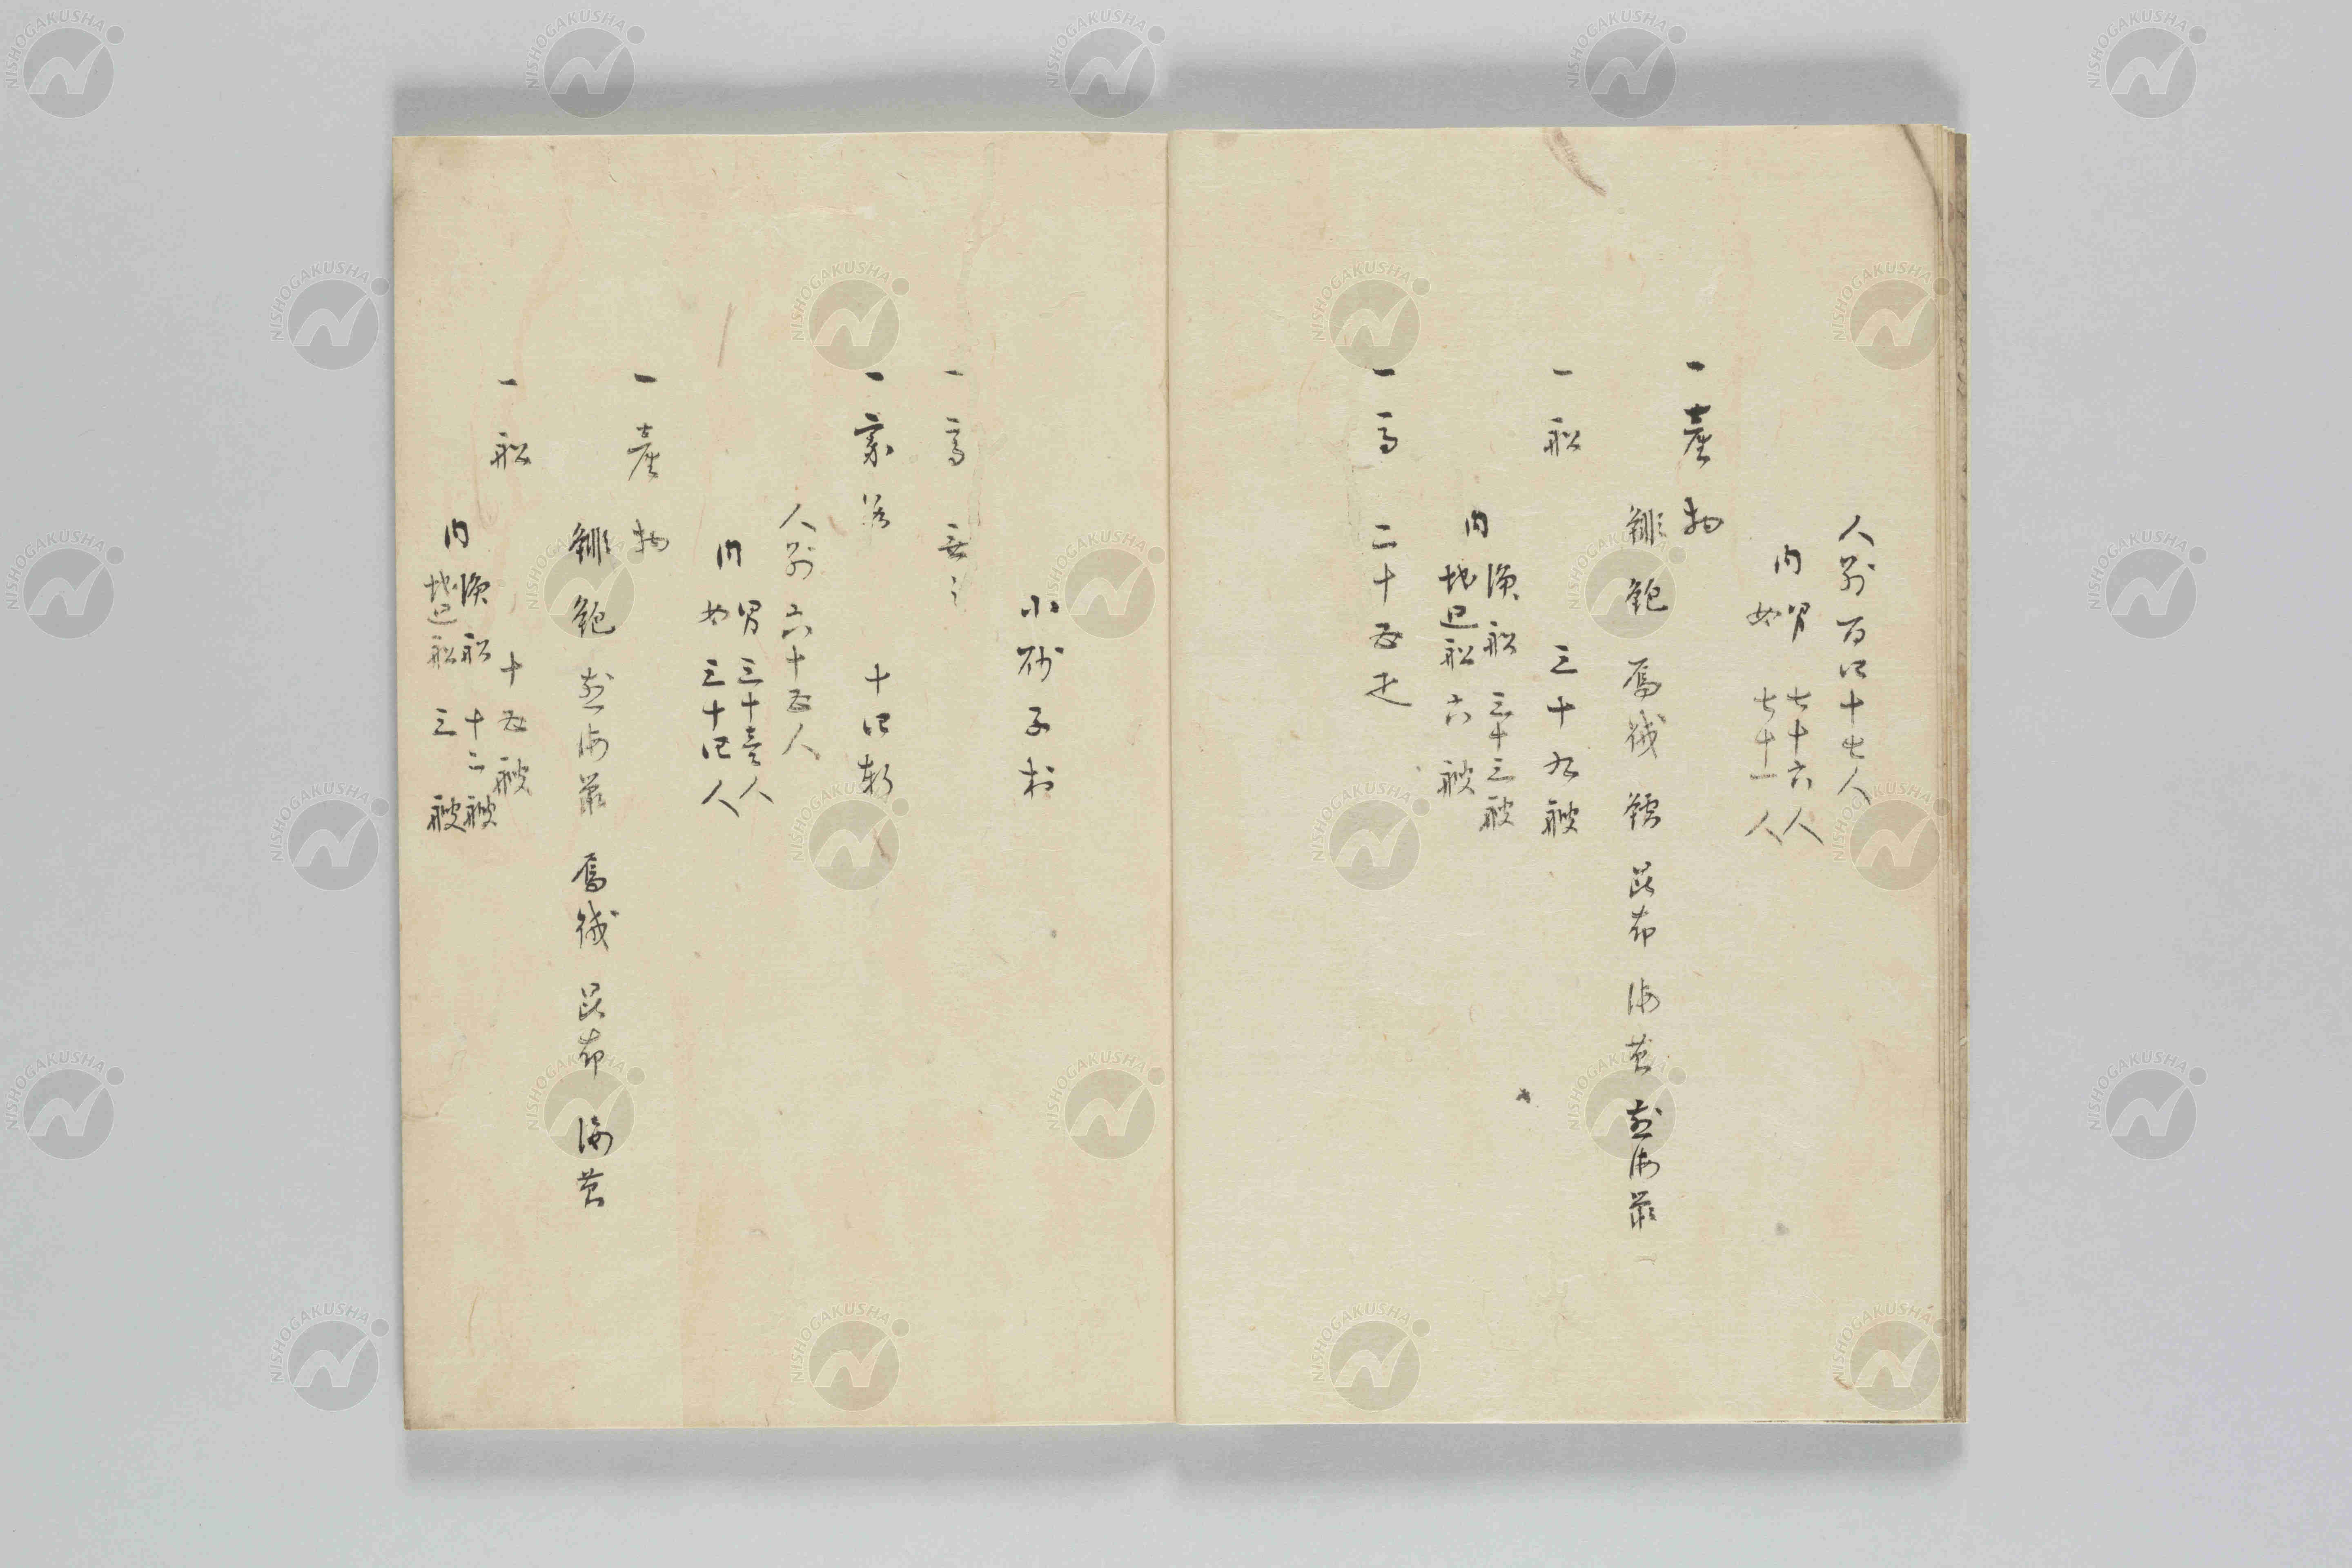 人別百四十七人
内 男 七十六人
女 七十一人
一産物
鯡 鮑 鱈 昆布 海苔 煎海鼠
一船 三十九艘
内 漁船 三十三艘
地廻船 六艘
一馬 二十五疋
小砂子村
一高 無之
一家数 十四軒
人別六十五人
内 男 三十壱人
女 三十四人
一産物
鯡 鮑 煎海鼠 昆布 海苔
一船 十五艘
内 漁船 十二艘
地廻船 三艘
NISHOGAKUSHA